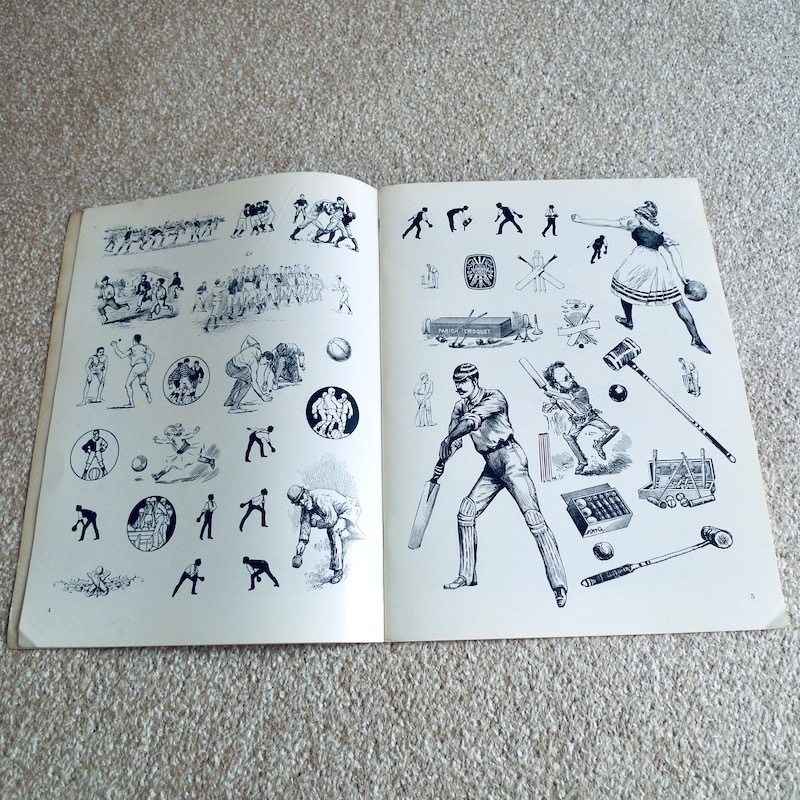 4
PARISH CROQUET
5